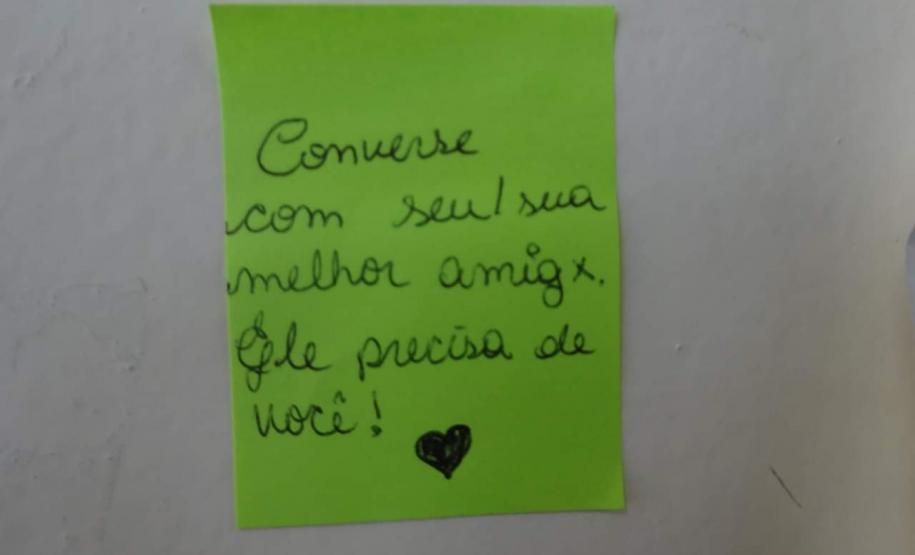 Converse
com seu/sua
melhor amigx.
Ele precisa de
você!